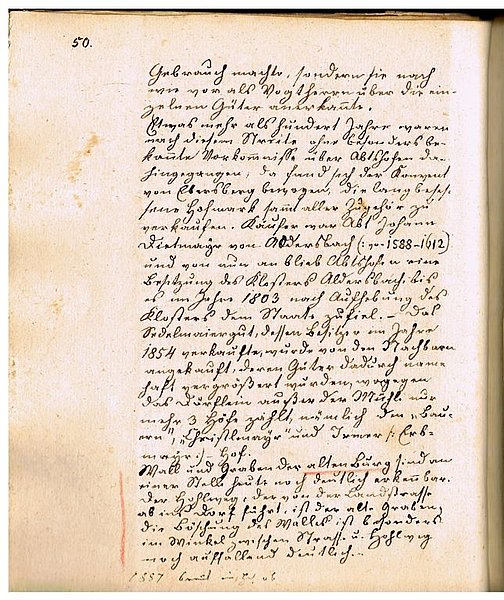 50.
Gebrauch machte, sondern sie nach
wie vor als Vogtherrn über die ein-
zelnen Güter anerkannte.
Etwas mehr als hundert Jahre waren
nach diesem Streite ohne besonders be-
kannte Vorkommnisse über Abtshofen da-
hingegangen; da fand sich der Konvent
von Ebersberg bewogen, die lang beses-
sene Hofmark samt aller Zugehör zu
verkaufen. Käufer war Abt Johann
Dietmayr von Aldersbach (: 1588-1612)
und von nun an blieb Abtshofen eine
Besitzung des Klosters Aldersbach bis
es im Jahre 1803 nach Aufhebung des
Klosters dem Staate zufiel. — Das
Sedelmaiergut, dessen Besitzer im Jahre
1854 verkaufte, wurde von den Nachbarn
angekauft, deren Güter dadurch nam-
haft vergrößert wurden, wogegen
das Dörflein außer der Mühle nur
mehr 3 Höfe zählt, nämlich den „Bau-
ern", „Christlmayr" und Irrer (: Erb-
mayr :) - Hof.
Wall und Graben der alten Burg sind an
einer Stelle heute noch deutlich erkennbar.
Der Hohlweg, der von der Landstrasse
ab ins Dorf führt, ist der alte Graben;
die Böschung des Walles ist besonders
im Winkel zwischen Strasse u. Hohlweg
noch auffallend deutlich. —
1857